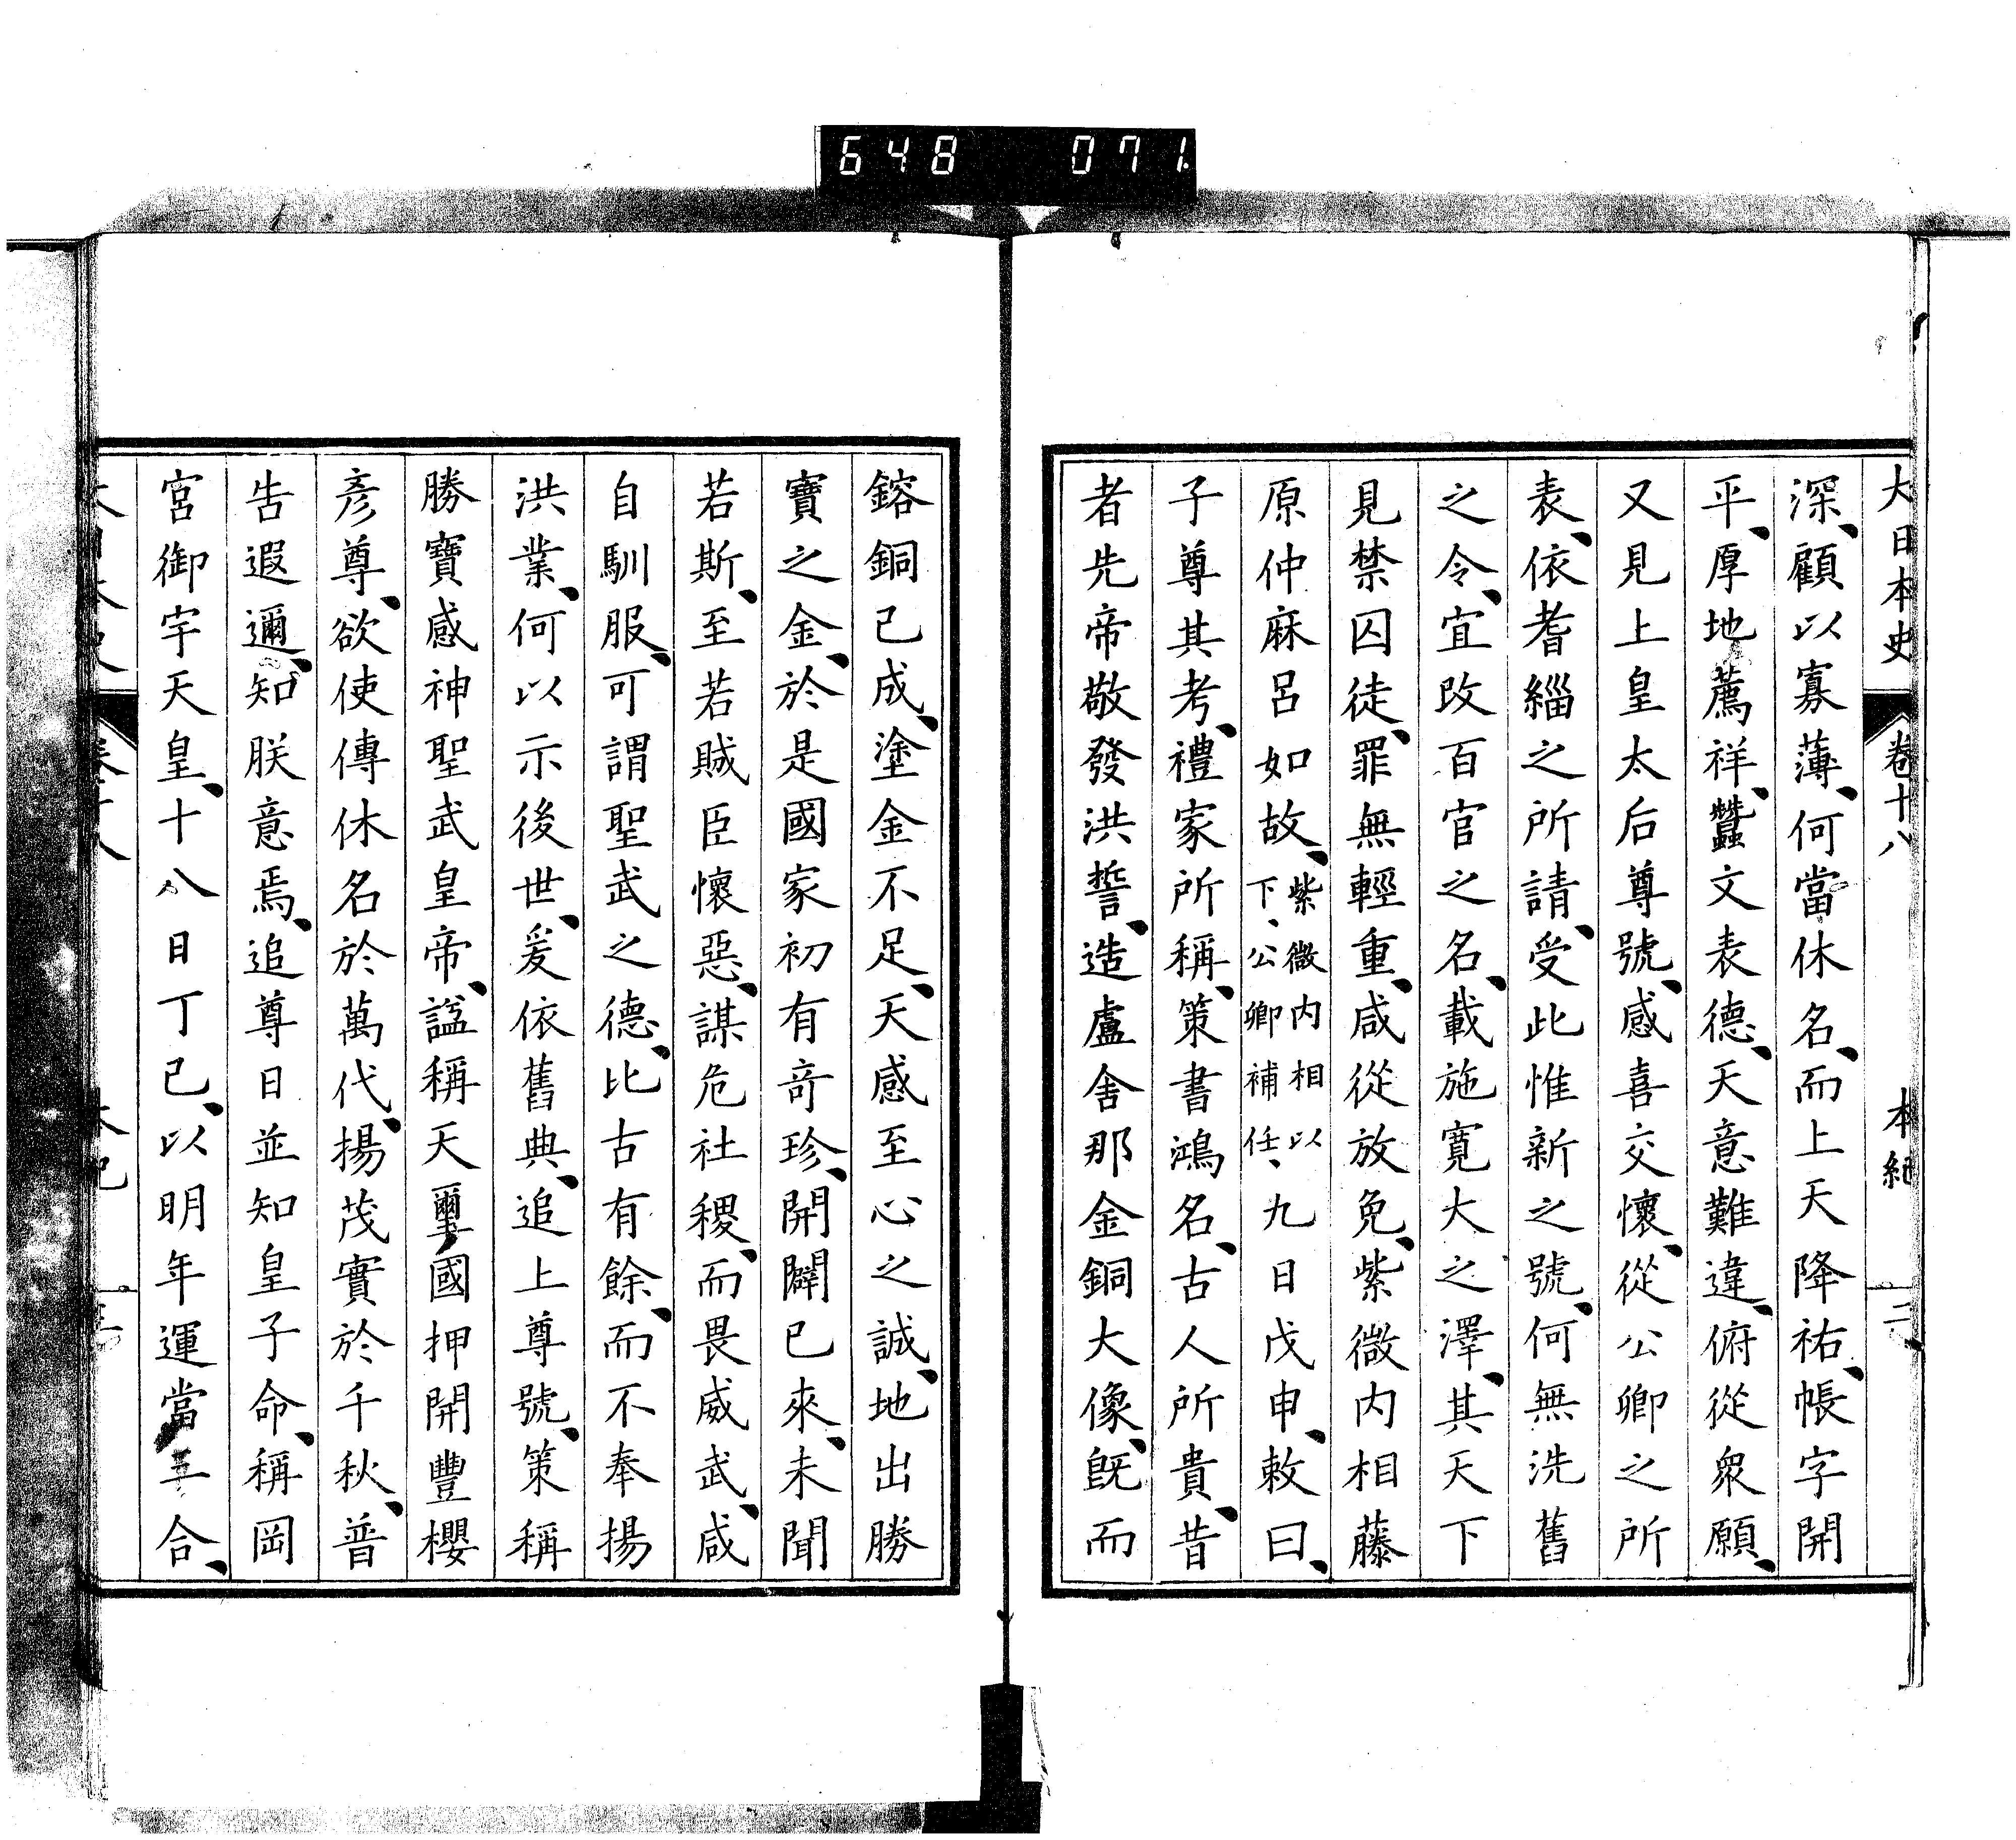 648 071
大日本史 卷十八 本紀 二
深、顧以寡薄、何當休名、而上天降祐、帳字開
平、厚地薦祥、蠶文表德、天意難違、俯從衆願、
又見上皇太后尊號、感喜交懷、從公卿之所
表、依耆緇之所請、受此惟新之號、何無洗舊
之令、宜改百官之名、載施寬大之澤、其天下
見禁囚徒、罪無輕重、咸從放免、紫微内相藤
原仲麻呂如故、紫微内相以下、公卿補任、九日戊申、敕曰、
子尊其考、禮家所稱、策書鴻名、古人所貴、昔
者先帝敬發洪誓、造盧舍那金銅大像、既而
鎔銅已成、塗金不足、天感至心之誠、地出勝
寶之金、於是國家初有奇珍、開闢已來、未聞
若斯、至若賊臣懷惡、謀危社稷、而畏威武、咸
自馴服、可謂聖武之德、比古有餘、而不奉揚
洪業、何以示後世、爰依舊典、追上尊號、策稱
勝寶感神聖武皇帝、諡稱天璽國押開豐櫻
彥尊、欲使傳休名於萬代、揚茂實於千秋、普
告遐邇、知朕意焉、追尊日並知皇子命、稱岡
宮御宇天皇、十八日丁巳、以明年運當三合、